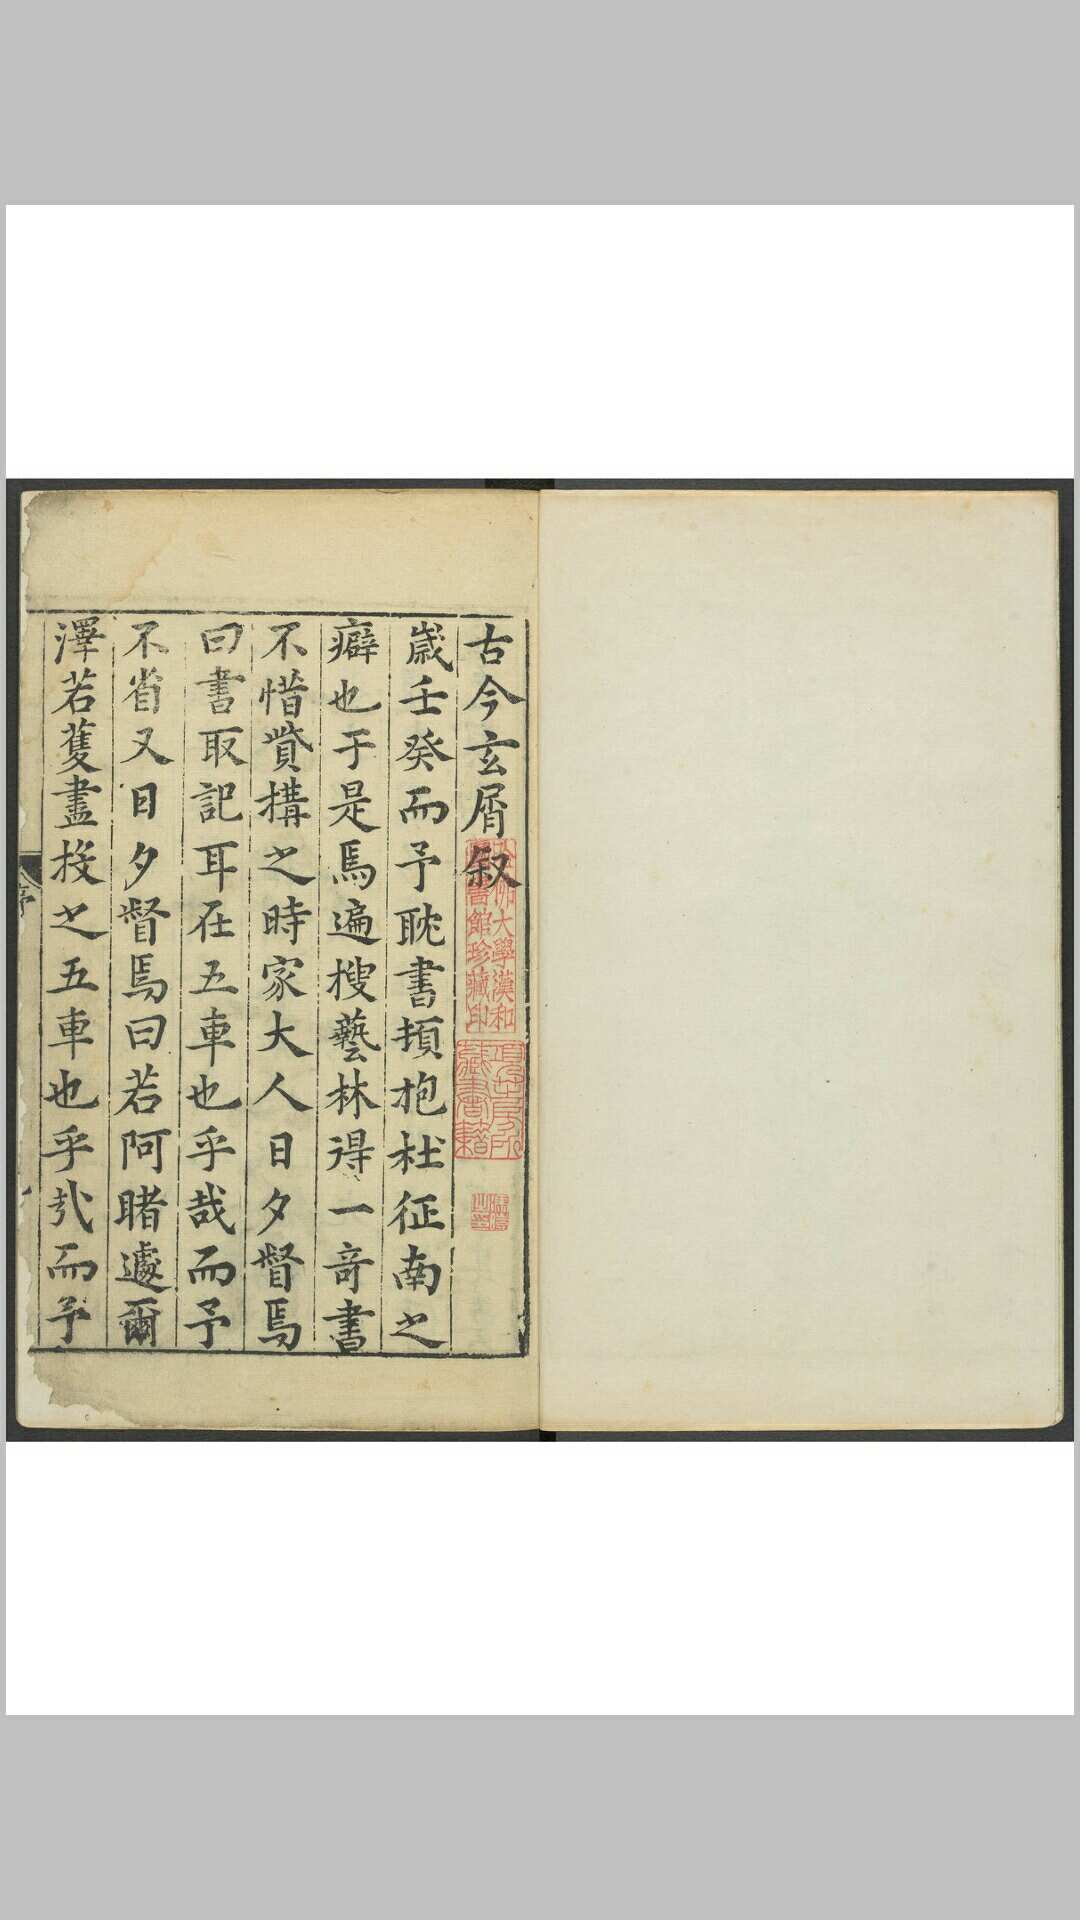 古今玄屑叙
歲壬癸而予耽書頃抱杜征南之
癖也于是焉遍搜藝林得一竒書
不惜貲構之時家大人日夕督焉
曰書取記耳在五車也乎哉而予
不省又日夕督焉曰若阿睹遽爾
澤若蒦盡掞之五車也乎㢤而予
哈佛大學漢和
圖書館珍藏印
藏書籍
序